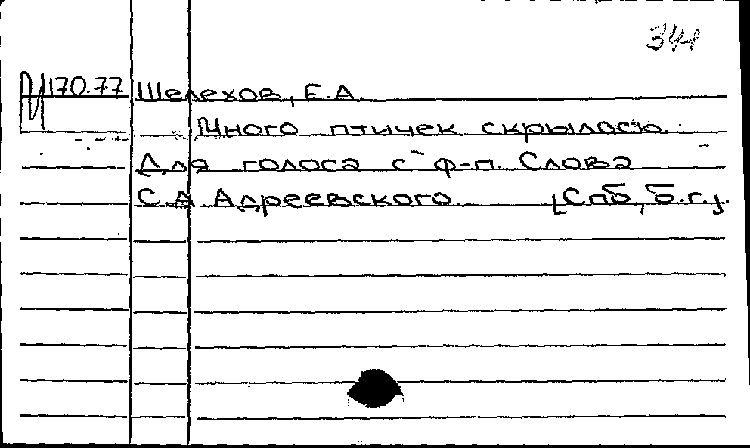 341
М 170.77 Шелехов, Е.А.
Много птичек скрылось.
Для голоса с ф-п. Слова
С.А. Адреевского [Спб, б.г.].